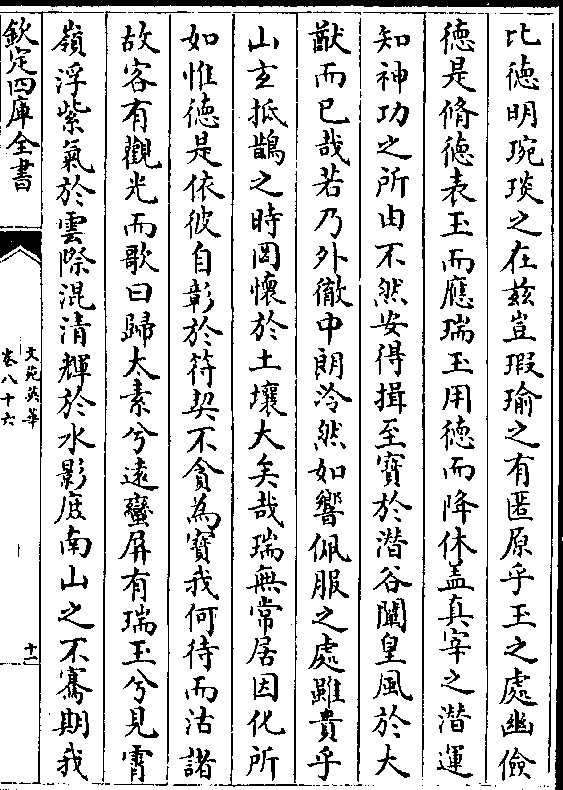 比德明琬琰之在兹豈瑕瑜之有匿原乎玉之處幽儉
德是脩德表玉而應瑞玉用德而降休盖真宰之潜運
知神功之所由不然安得揖至寳於潜谷闡皇風於大
猷而已哉若乃外徹中朗泠然如響佩服之處雖貴乎
山玄抵鵲之時罔懷於土壤大矣哉瑞無常居因化所
如惟德是依彼自彰於符契不貪為寳我何待而沽諸
故客有觀光而歌曰歸太素兮遠蠻屏有瑞玉兮見霄
嶺浮紫氣於雲際混清輝於水影庻南山之不騫期我
欽定四庫全書
文苑英華
卷八十六
十一